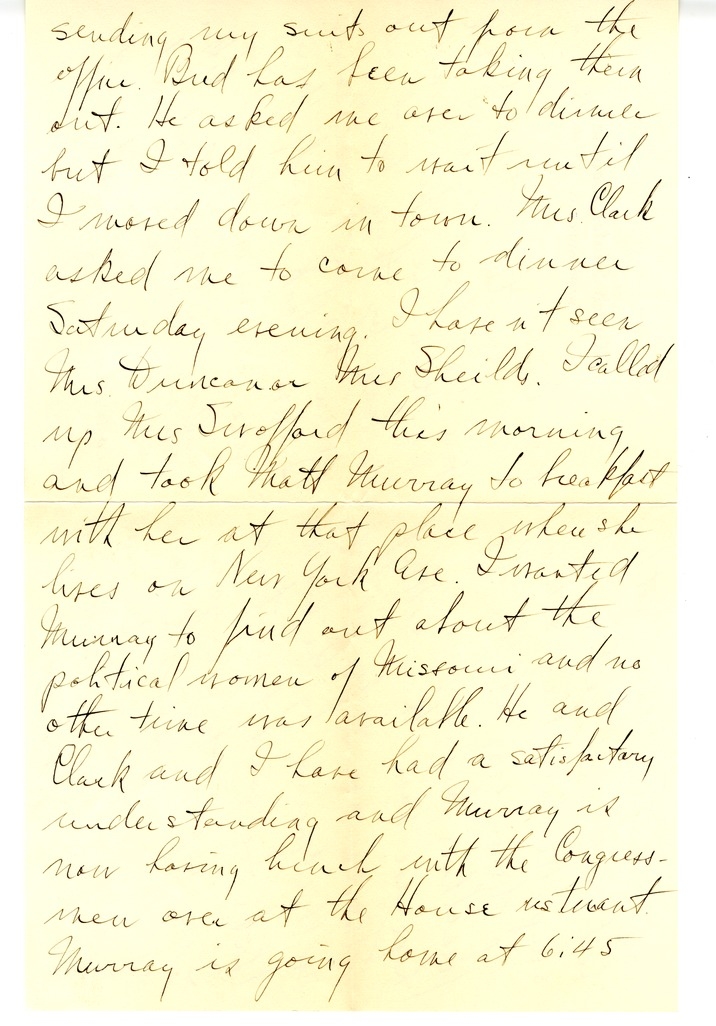 sending my suits out from the
office. Bud has been taking them
out. He asked me over to dinner
but I told him to wait until
I moved down in town. Mrs. Clark
asked me to come to dinner
Saturday evening. I haven't seen
Mrs. Duncan or Mrs Sheilds. I called
up Mrs Swofford this morning
and took Matt Murray to breakfast
with her at that place where she
lives on New York Ave. I wanted
Murray to find out about the
political women of Missouri and no
other time was available. He and
Clark and I have had a satisfactory
understanding and Murray is
now having lunch with the Congress-
men over at the House resturant.
Murray is going home at 6:45